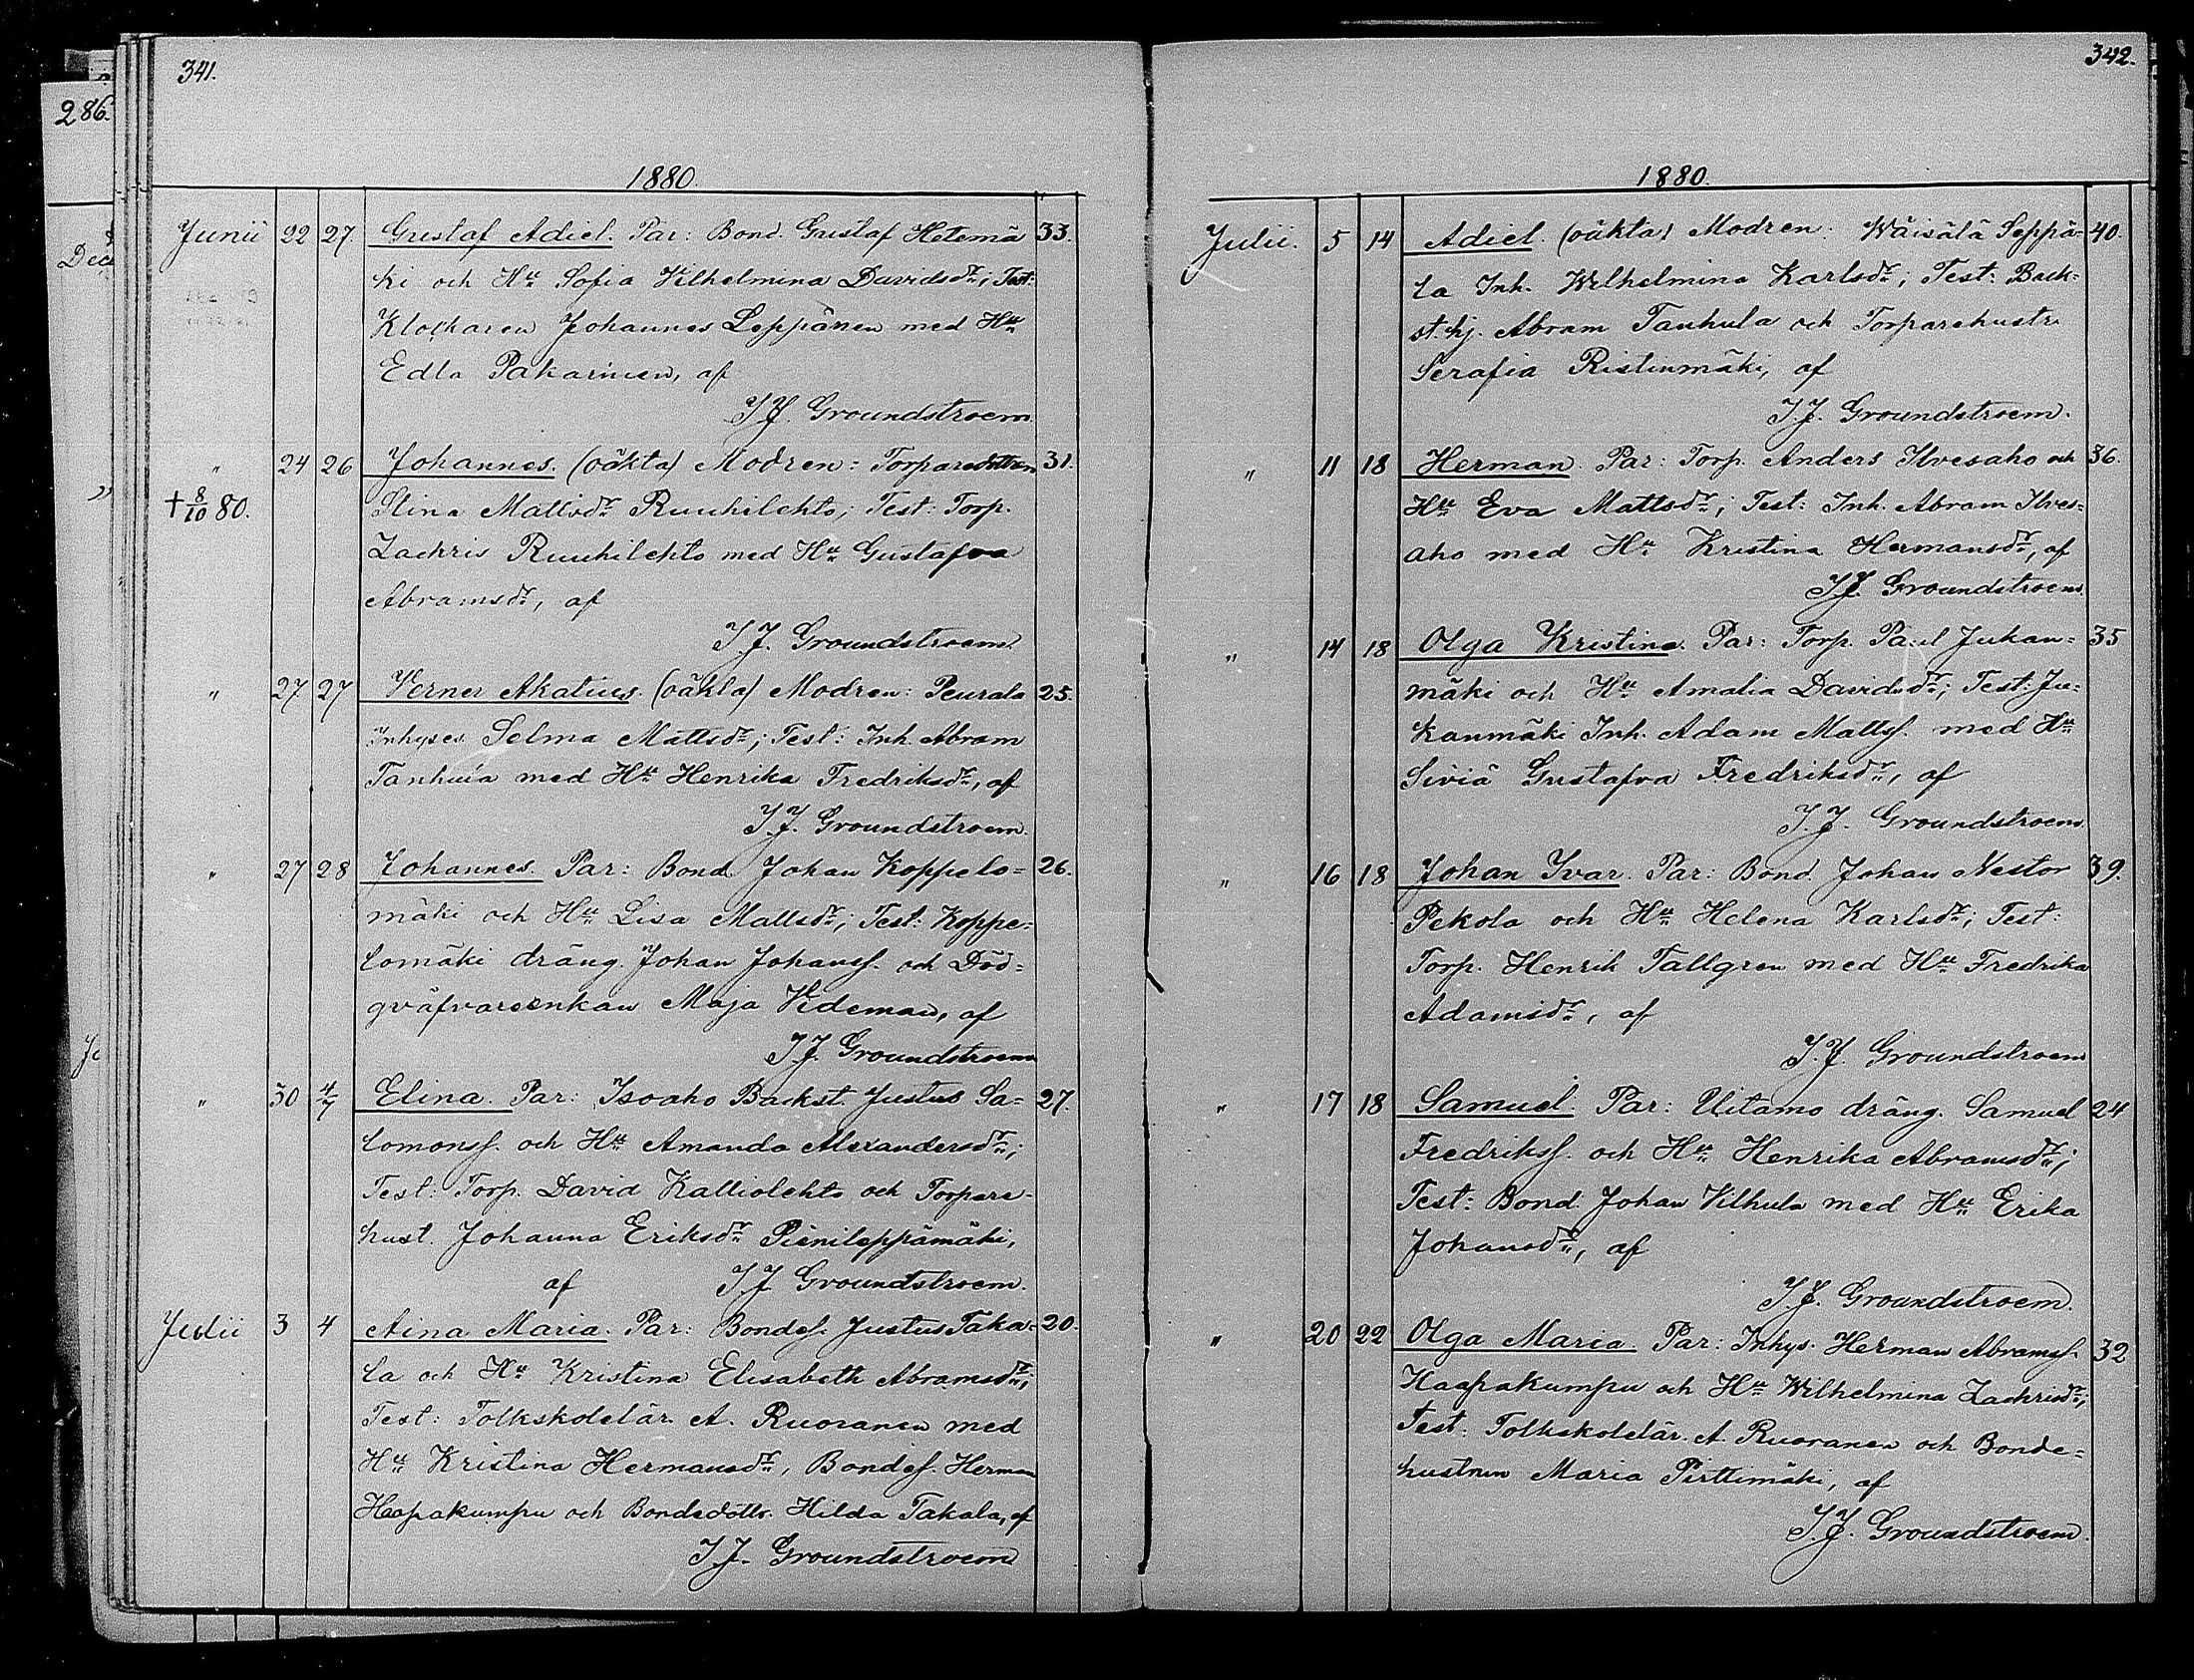 341.
286.
1880.
Junii 22 27. Gustaf Adiel. Par: Bond. Gustaf Hetemä 33.
ki och Hu Sofia Vilhelmina Davidsdr; Test:
Klockaren Johannes Leppänen med Hu
Edla Pakarinen, af
I.J. Groundstroem.
" 24 26 Johannes. (oäkta) Modren: Torparedottren 31.
+ 8/10 80. Stina Mattsdr Ruuhilehto; Test: Torp.
Zachris Ruuhilehto med Hu Gustafva
Abramsdr, af
I.J. Groundstroem.
" 27 27 Verner Akatius. (oäkta) Modren: Peurala 25.
Inhyses Selma Mattsdr; Test: Inh. Abram
Tanhula med Hu Henrika Fredriksdr, af
I.J. Groundstroem.
" 27 28 Johannes. Par: Bond. Johan Koppelo= 26.
mäki och Hu Lisa Mattsdr; Test: Koppe=
lomäki dräng. Johan Johanss. och Död=
gräfvareenkan Maja Videman, af
I.J. Groundstroem
" 30 4/7 Elina. Par: Isoaho Backst. Justus Sa= 27.
lomonss. och Hu Amanda Alexandersdr;
Test: Torp. David Kalliolehto och Torpare-
hust. Johanna Eriksdr Pienileppämäki,
af I.J. Groundstroem.
Julii 3 4 Aina Maria. Par: Bondes. Justus Taka= 20.
la och Hu Kristina Elisabeth Abramsdr;
Test: Folkskolelär. A. Ruoranen med
Hu Kristina Hermansdr, Bondes. Herman
Haapakumpu och Bondedottr. Hilda Takala, af
I.J. Groundstroem
342.
1880.
Julii. 5 14 Adiel. (oäkta) Modren: Wäisälä Seppä= 40.
la Inh. Wilhelmina Karlsdr; Test: Back=
st.hj. Abram Tanhula och Torparehustr.
Serafia Ristinmäki, af
I.J. Groundstroem.
" 11 18 Herman. Par: Torp. Anders Ilvesaho och 36.
Hu Eva Mattsdr; Test: Inh. Abram Ilves=
aho med Hu Kristina Hermansdr, af
I.J. Groundstroem.
" 14 18 Olga Kristina. Par: Torp. Paul Jukan= 35
mäki och Hu Amalia Davidsdr; Test: Ju=
kanmäki Inh. Adam Matts. med Hu
Siviä Gustafva Fredriksdr, af
I.J. Groundstroem.
" 16 18 Johan Ivar. Par: Bond. Johan Nestor 39.
Pekola och Hu Helena Karlsdr; Test:
Torp. Henrik Tallgren med Hu Fredrika
Adamsdr, af
I.J. Groundstroem
" 17 18 Samuel. Par: Uitamo dräng. Samuel 24
Fredrikss. och Hu Henrika Abramsdr;
Test: Bond. Johan Vilhula med Hu Erika
Johansdr, af
I.J. Groundstroem.
" 20 22 Olga Maria. Par: Inhys. Herman Abramss. 32
Haapakumpu och Hu Wilhelmina Zachrisdr;
Test: Folkskolelär. A. Ruoranen och Bonde=
hustrun Maria Pirttimäki, af
I.J. Groundstroem.